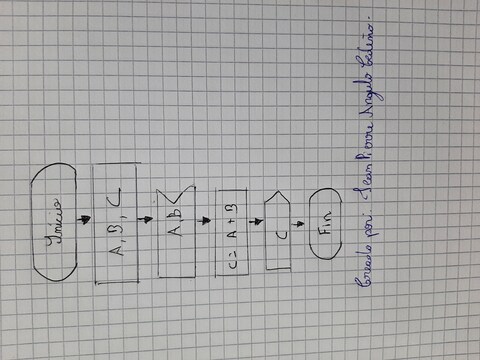 Inicio
A, B, C
A,B
C = A + B
C
Fin
Creado por: Jean Pierre Angulo Cedeño.